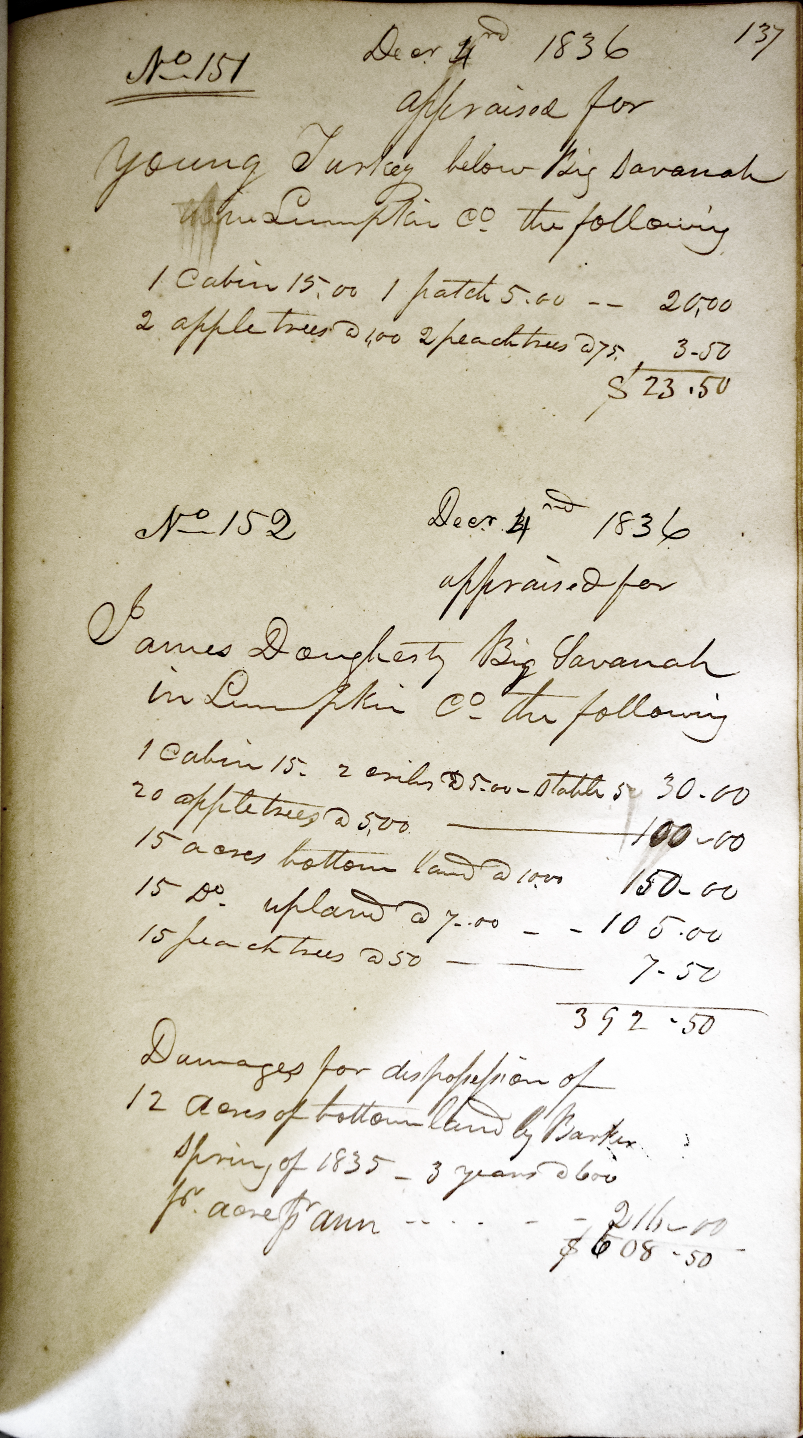 137
No 151 Decr 4rd 1836
appraised for
Young Turkey below Big Savanah
in Lumpkin Co the following
1 Cabin 15.00 1 patch 5.00 -- 20,00
2 apple trees @ 1,00 2 peach trees @ 75. 3-50
$ 23.50
No 152 Decr 4nd 1836
appraised for
James Dougherty Big Savanah
in Lumpkin Co the following
1 Cabin 15. 2 cribs @ 5.00 - Stable 5 30-00
20 apple trees @ 5,00 100-00
15 acres bottom land @ 10.00 150-00
15 Do. upland @ 7-.00 - - 105.00
15 peach trees @ 50 — — 7-50
392-50
Damages for dispossession of
12 acres of bottom land by Barker
Spring of 1835 - 3 years @ 600
pr. acre pr ann -- . . - - 216-00
$ 608-50